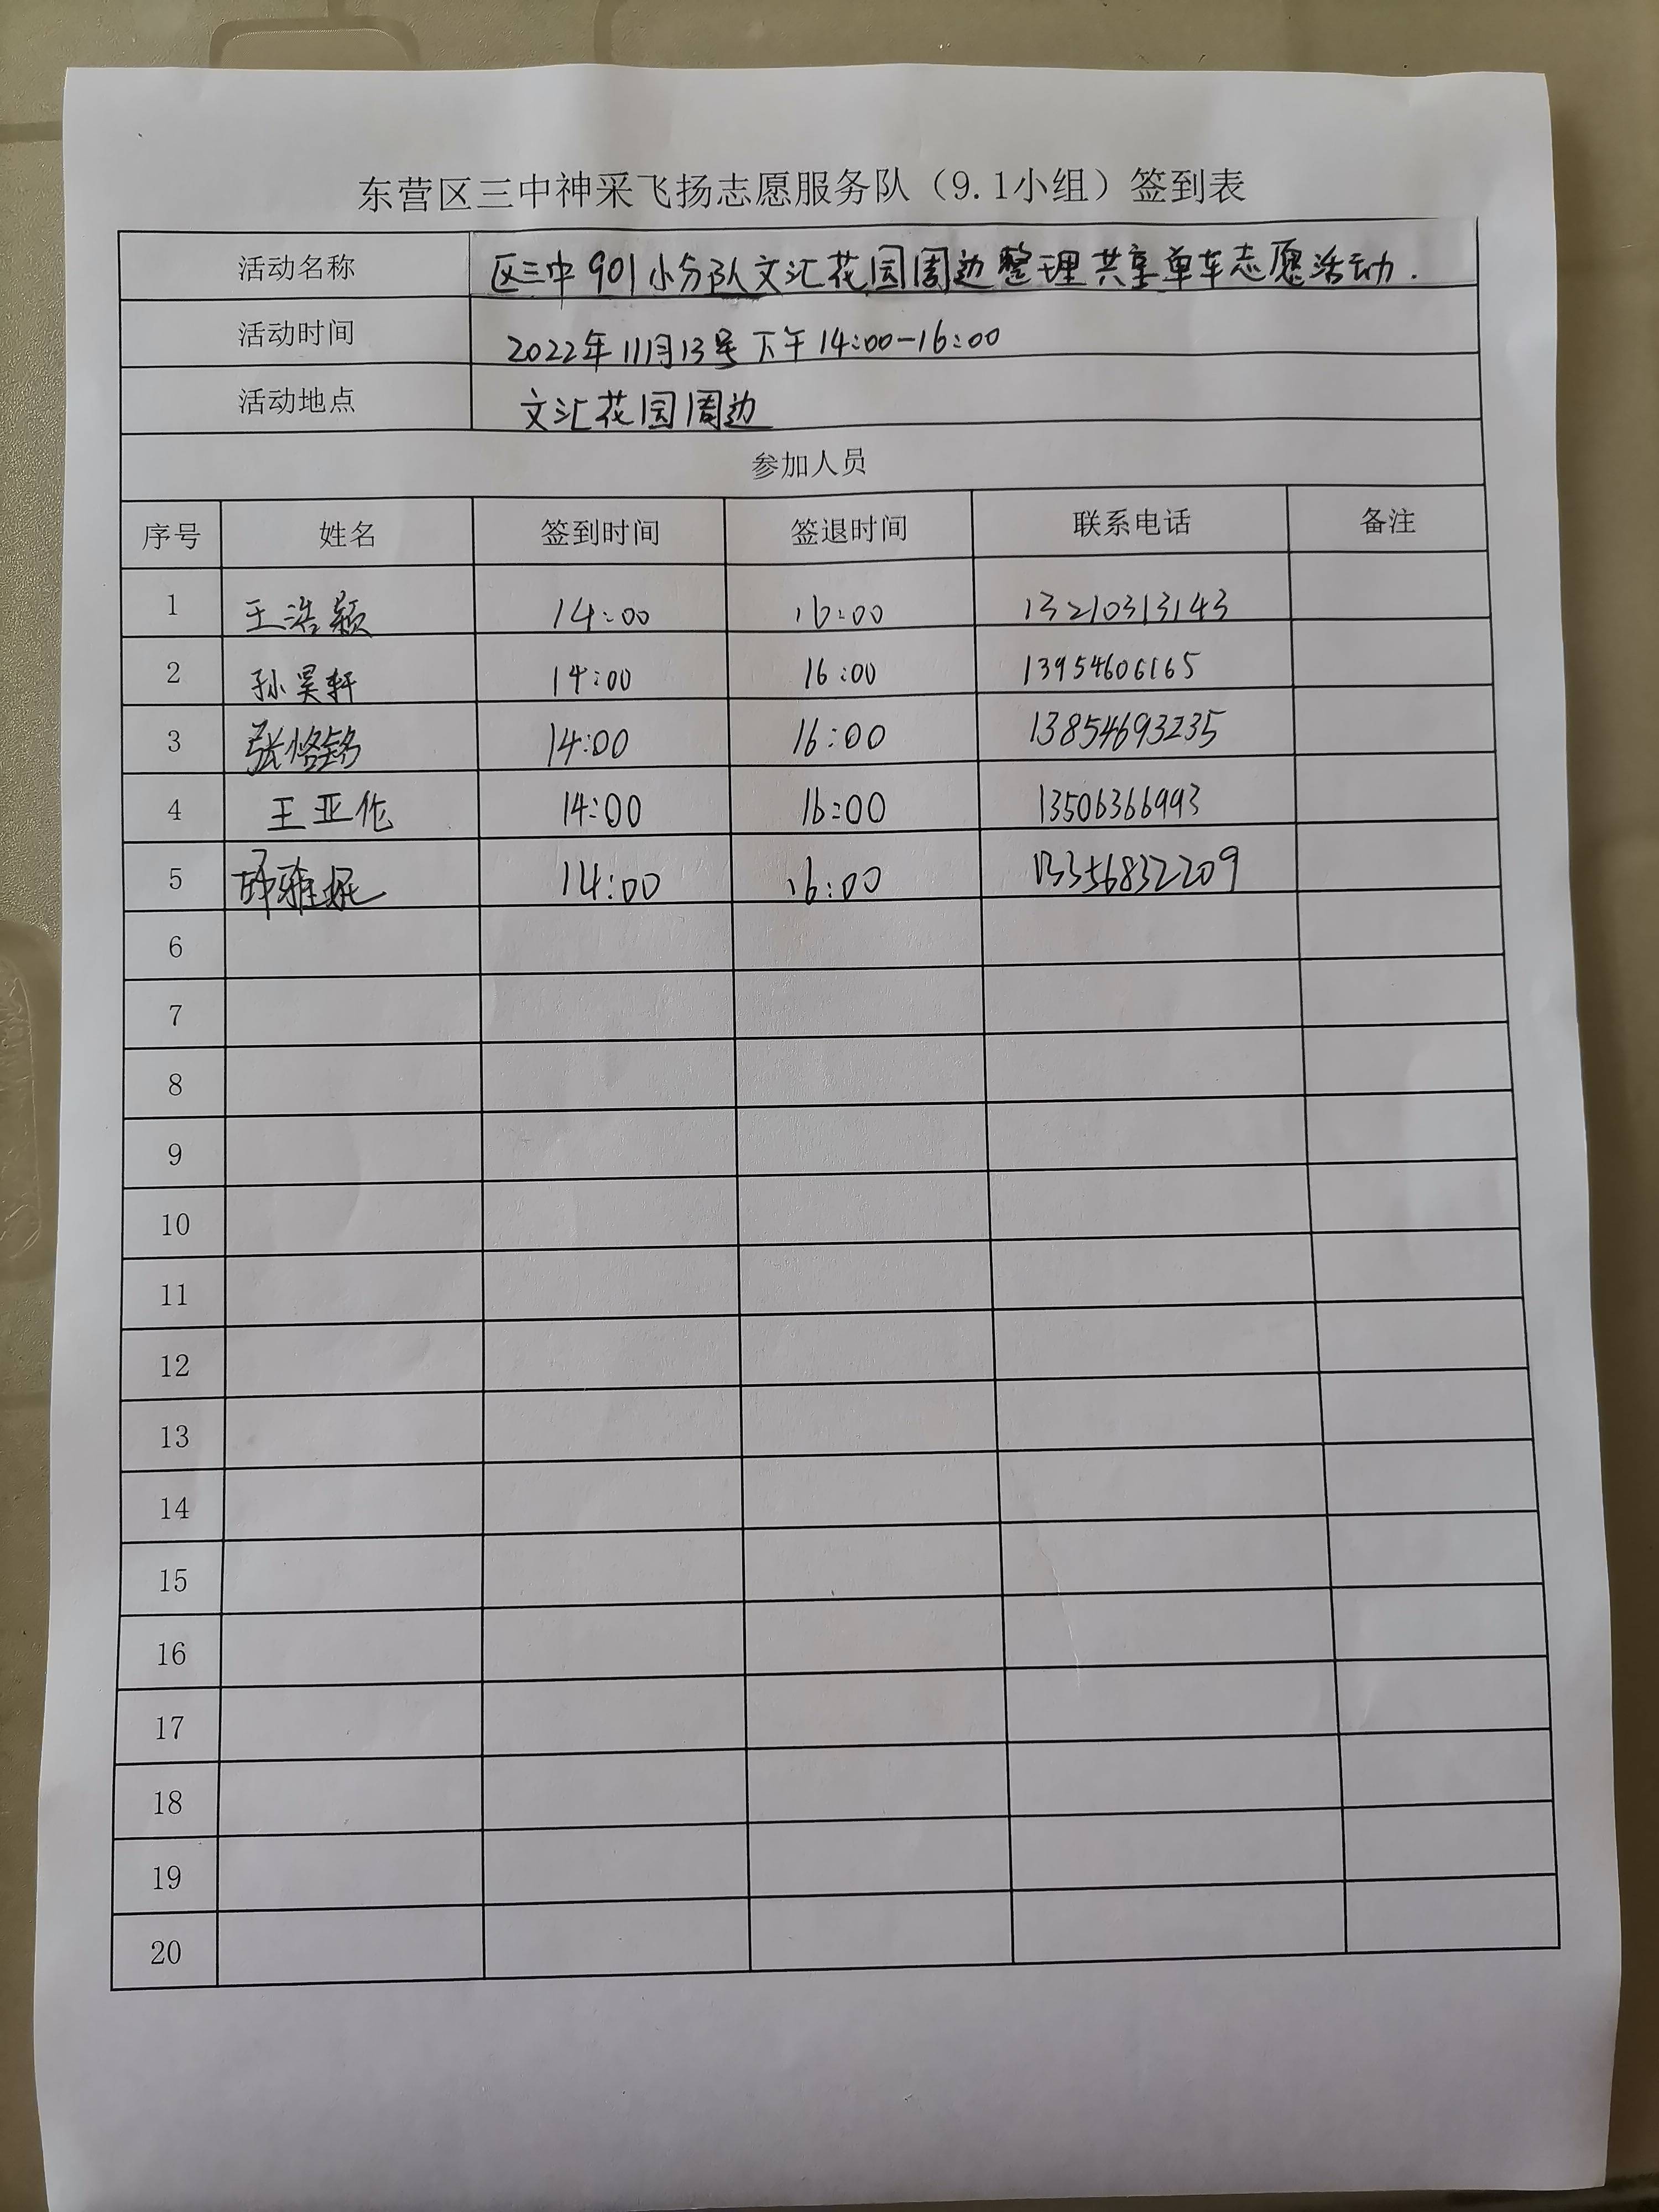 东营区三中神采飞扬志愿服务队（9.1小组）签到表
活动名称 区三中901小分队文汇花园周边整理共享单车志愿活动.
活动时间 2022年11月13号下午14:00-16:00
活动地点 文汇花园周边
参加人员
序号 姓名 签到时间 签退时间 联系电话 备注
1 王浩颖 14:00 16:00 13210313143
2 孙昊轩 14:00 16:00 13954606165
3 张恪铭 14:00 16:00 13854693235
4 王亚伦 14:00 16:00 13506366993
5 14:00 16:00 13356832209
6
7
8
9
10
11
12
13
14
15
16
17
18
19
20